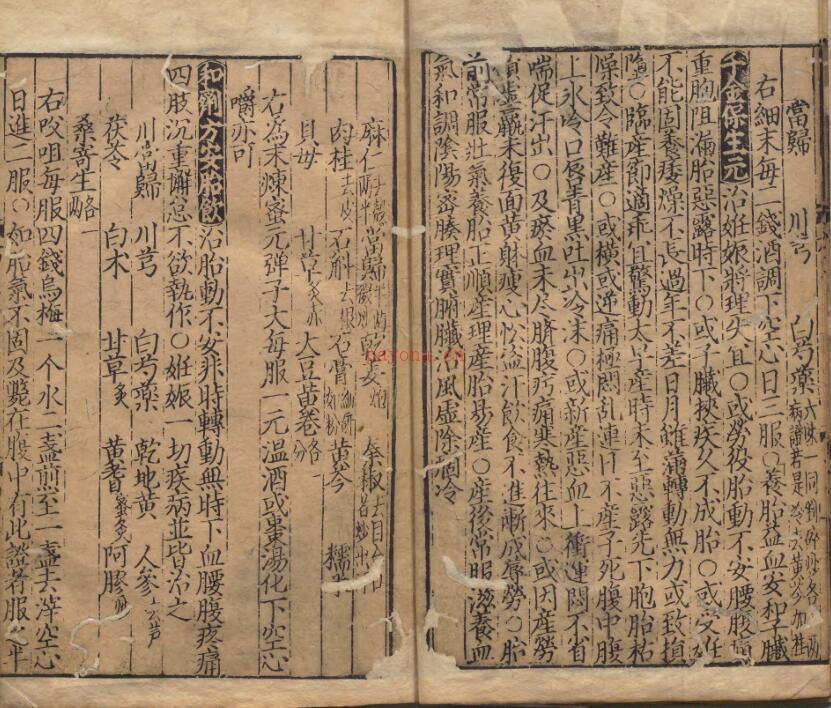 當歸 川芎 白芍藥 六味一同剉碎炒各一兩 病證若是冷去黃芩加桂
右細末每二錢酒調下空心日三服○養胎益血安和子臟
千金保生元 治姙娠將理失宜○或勞役胎動不安腰腹痛
重胞阻漏胎惡露時下○或子臟挾疾久不成胎○或受姙
不能固養痿燥不長過年不差日月雖滿轉動無力或致損
墮○臨產節適乖宜驚動太早產時未至惡露先下胞胎枯
燥致令難產○或橫或逆痛極悶亂連日不產子死腹中腹
上氷冷口唇青黑吐出冷沫○或新產惡血上衝運悶不省
喘促汗出○及瘀血未尽臍腹疠痛寒熱往來○或因產勞
虛羸未復面黃肌瘦心忪盜汗飲食不進漸成蓐勞○胎
前常服壯氣養胎正順產理產胎易產○產後常服滋養血
氣和調陰陽密腠理實腑臟治風虛除痼冷
麻仁 當歸 乾姜 秦椒
肉桂去皮 石斛去根 石膏 黃芩 糯米
貝母 甘草炙 大豆黃卷
右為末煉蜜元弹子大每服一元温酒或棗湯化下空心
嚼亦可
和劑方安胎飲 治胎動不安非時轉動無時下血腰腹疼痛
四肢沉重懈怠不欲執作○姙娠一切疾病並皆治之
川當歸 川芎 白芍藥 乾地黃 人參去芦
茯苓 白术 甘草炙 黃耆蜜炙 阿膠
桑寄生
右㕮咀每服四錢烏梅一个水二盞煎至一盞去滓空心
日進二服○如胎氣不固及斃在腹中有此證者服